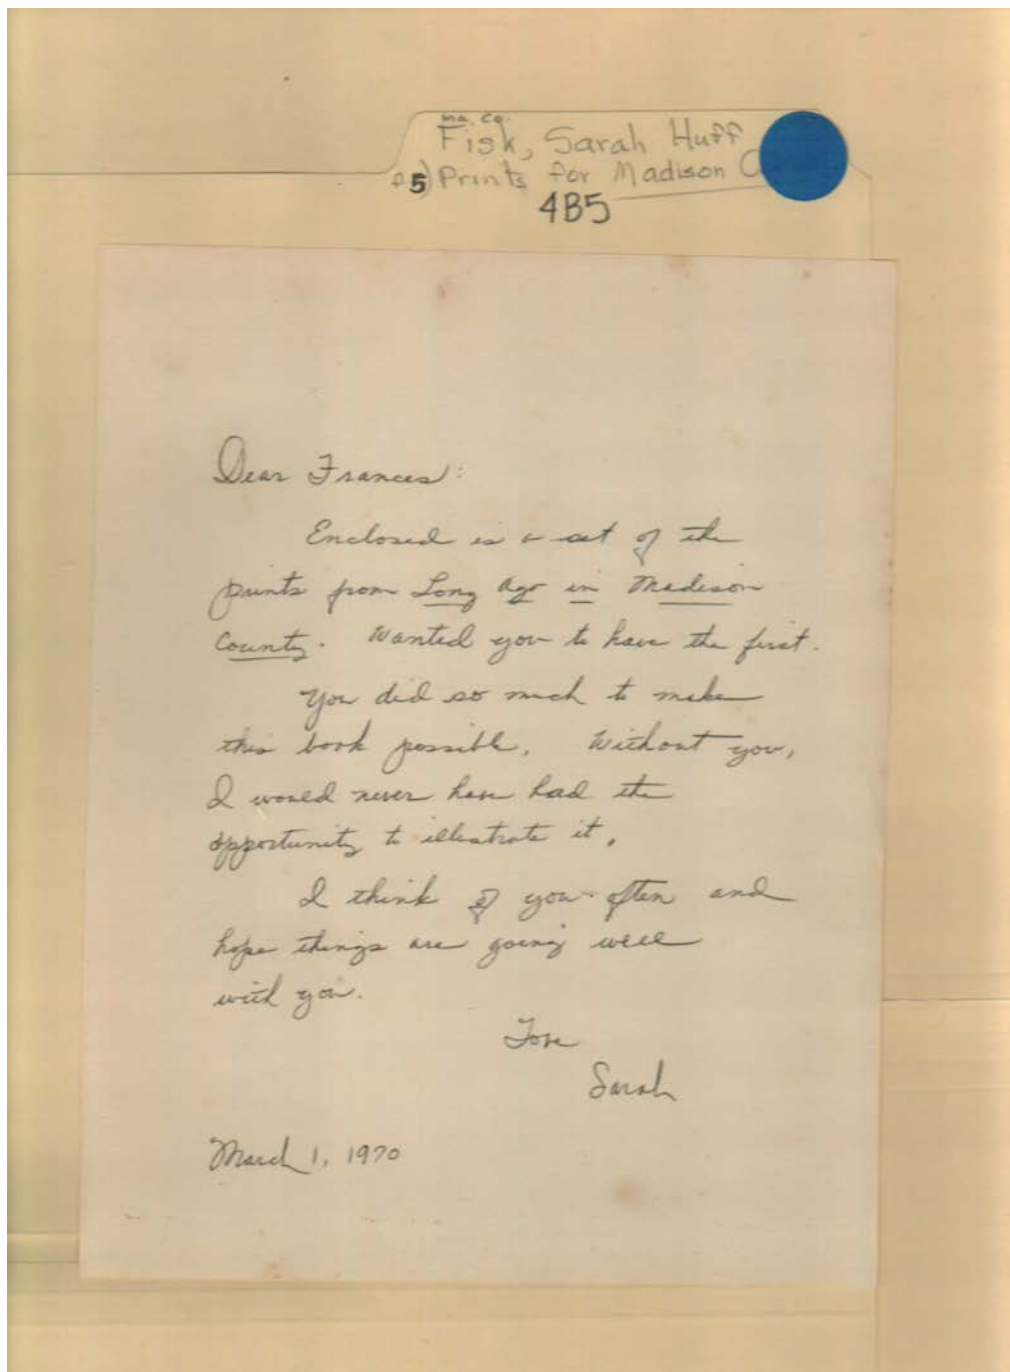 Ma. Co.
Fisk, Sarah Huff
5) Prints for Madison
4B5
Dear Frances:
Enclosed is a set of the
prints from Long Ago in Madison
County. Wanted you to have the first.
You did so much to make
this book possible. Without you,
I would never have had the
opportunity to illustrate it.
I think of you often and
hope things are going well
with you.
Love
Sarah
March 1, 1970